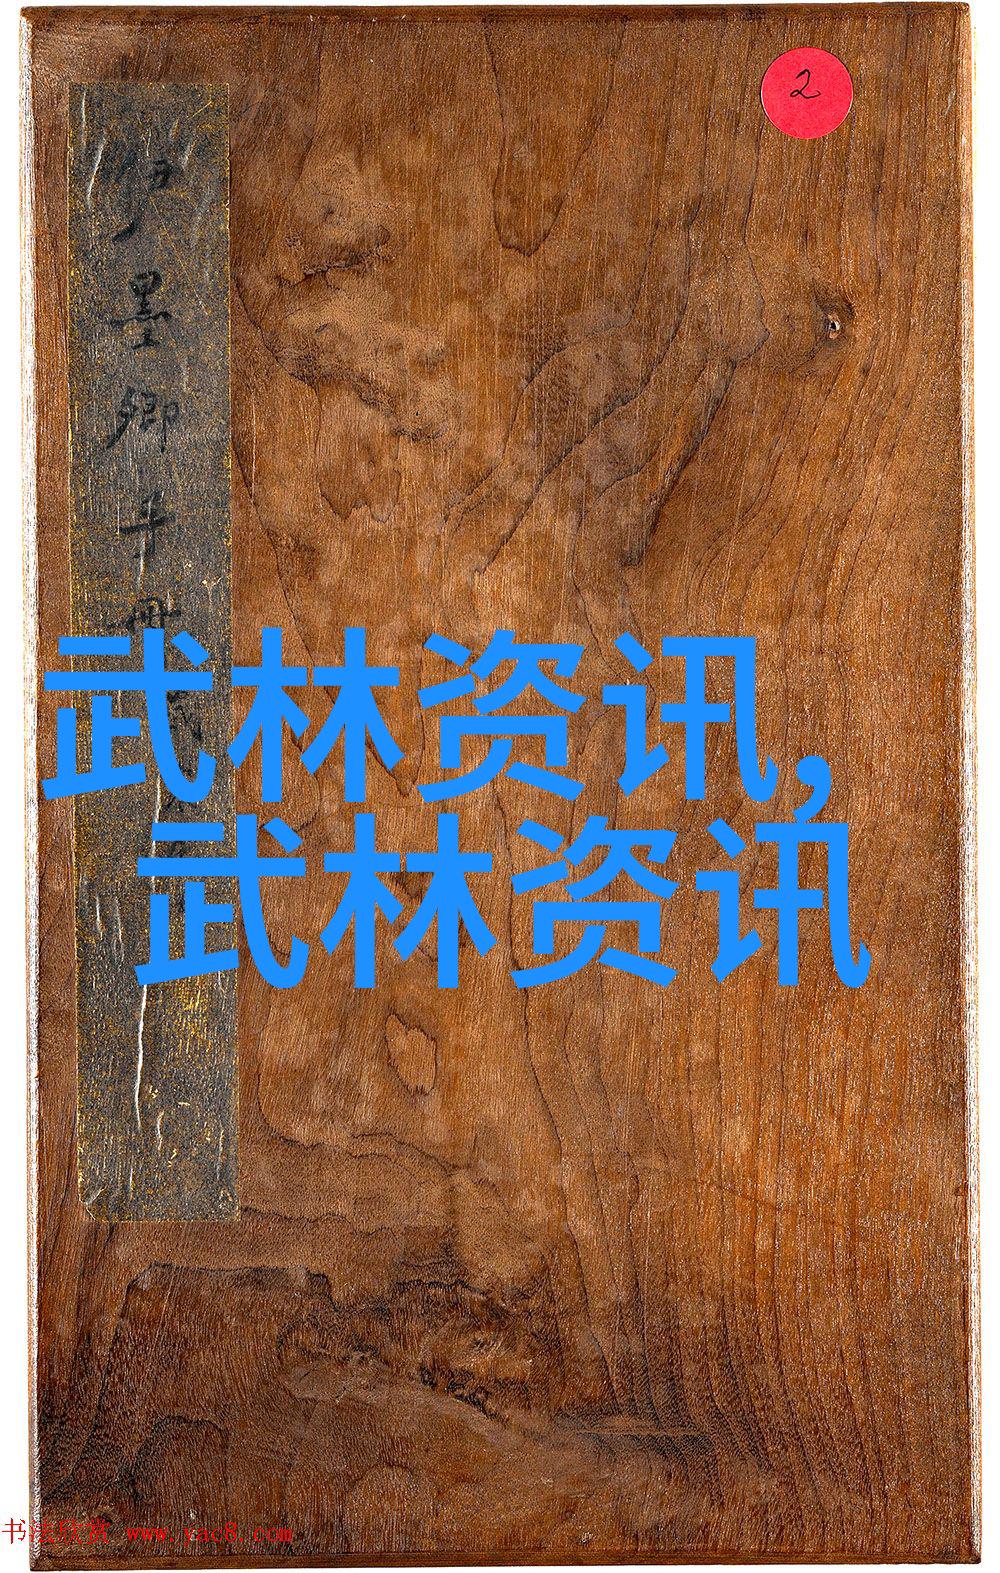 2
墨卿手冊
武林资讯,
武林资讯
书法欣赏 www.yac8.com